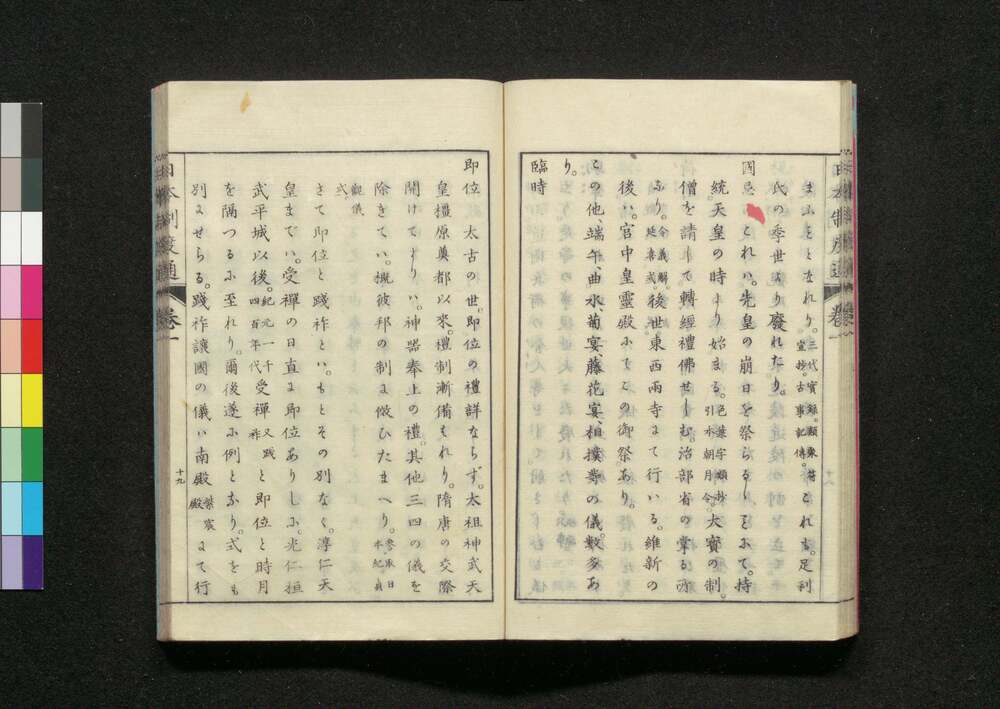 まふとなれり。三代實録。類聚符宣抄。古事記傳。これ亦。足利
氏の季世より廢れたり。
國忌 これハ。先皇の崩日を祭らるゝにて。持
統天皇の時より始まる。色葉字類抄。引本朝月令。大寶の制。
僧を請して。轉經禮佛せしむ。治部省の掌る所
なり。令義解。延喜式。後世東西兩寺にて行ハる。維新の
後ハ。宮中皇靈殿にてこの御祭あり。
この他、端午、曲水、菊宴、藤花宴、相撲等の儀。數多あ
り。
臨時
即位 太古の世。即位の禮詳ならず。太祖神武天
皇橿原奠都以來。禮制漸備もれり。隋唐の交際
開けてよりハ。神器奉上の禮。其他三四の儀を
除きてハ。概彼邦の制に倣ひたまへり。參取日本紀、貞觀儀
式、
さて即位と踐祚とハ。もとその別なく。淳仁天
皇までハ。受禪の日直に即位ありしに。光仁桓
武平城以後。紀元一千四百年代 受禪又踐祚と即位と時月
を隔つるに至れり。爾後遂に例となり。式をも
別にせらる。踐祚讓國の儀ハ南殿 紫宸殿 にて行
日本制度通 卷一
十八
日本制度通 卷一
十九